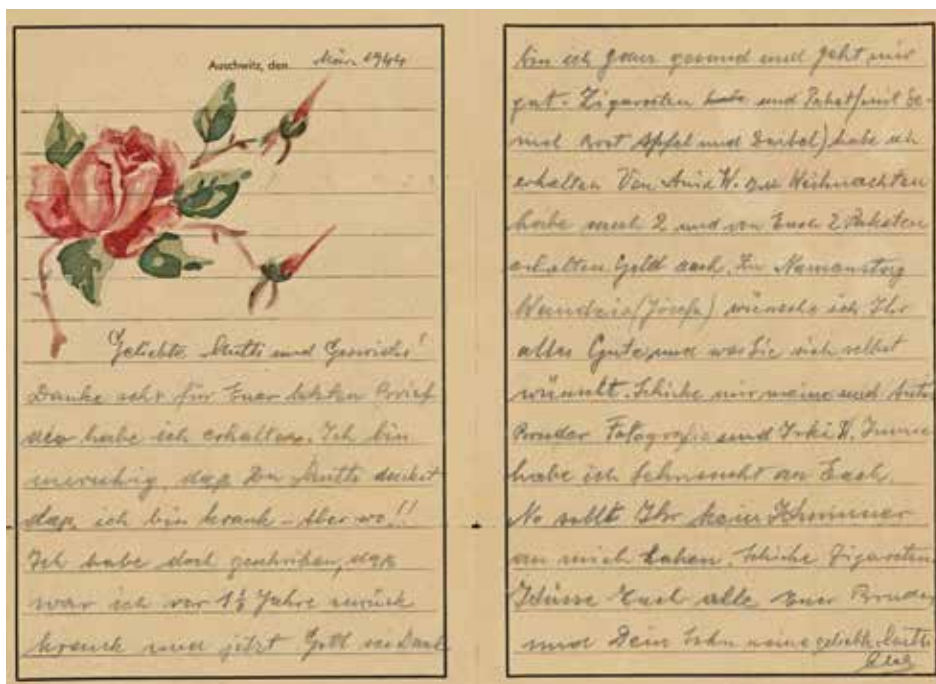 Auschwitz, den März 1944
Geliebte Mutti und
Danke sehr für Euer letzten Brief
habe ich erhalten. Ich bin
unruhig, daß Du Mutti denkst
daß ich bin krank – Aber wo!!
Ich habe doch geschrieben, daß
war ich vor 1½ Jahre zurück
krank und jetzt Gott sei Dank
bin ich ganz gesund und geht mir
gut. Zigaretten und Paket (mit
Brot Apfel und habe ich
erhalten Von W. zu Weihnachten
habe auch 2 und von Euch 2 Paketen
erhalten Geld auch. Zu Namenstag
(Józefa) wünsche ich Ihr
alles Gute und was Sie sich selbst
wünscht. Schicke mir meine und
Bruder Fotografie und Immer
habe ich Sehnsucht an Euch.
No sollt Ihr kein
an mich haben. Schicke Zigaretten
Küsse Euch alle Euer Bruder
und Dein Sohn meine geliebte Mutti